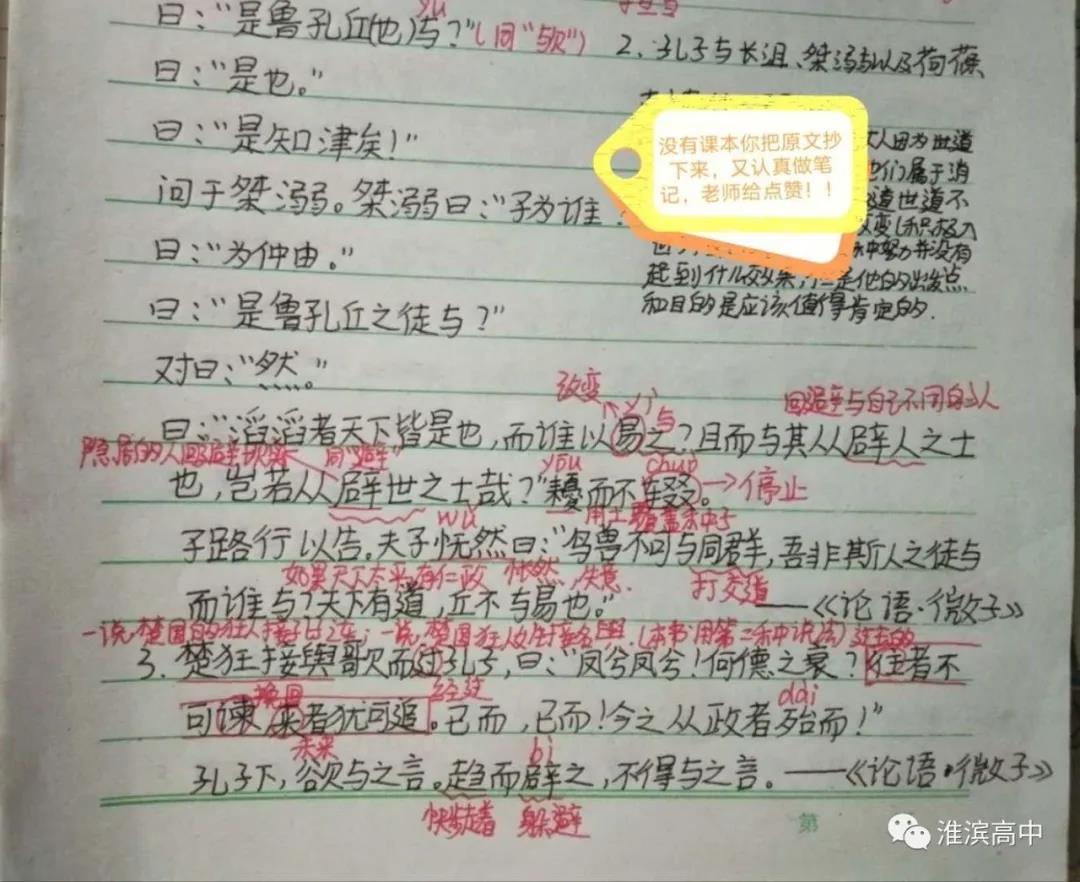 yú
曰：“是鲁孔丘(也)与？”(同“欤”)
曰：“是也。”
曰：“是知津矣！”
问于桀溺。桀溺曰：“子为谁
曰：“为仲由。”
曰：“是鲁孔丘之徒与？”
对曰：“然。”
改变
与
回避与自己不同的人
曰：“滔滔者天下皆是也，而谁以易之？且而与其从辟人之士
隐居的人
同“避”
yōu
chuò
也，岂若从辟世之士哉？”耰而不辍。→停止
wǔ
用土覆盖种子
子路行以告。夫子怃然曰：“鸟兽不可与同群，吾非斯人之徒与
如果天下太平,有仁政
怅然,失意.
打交道
而谁与？天下有道，丘不与易也。”——《论语·微子》
一说,楚国的狂人接孔子的车；一说,楚国狂人姓接名舆.(本书用第二种说法)过去的
3. 楚狂接舆歌而过孔子，曰：“凤兮凤兮！何德之衰？往者不
挽回
经过
dài
可谏，来者犹可追。已而，已而！今之从政者殆而！”
未来
bì
孔子下，欲与之言。趋而辟之，不得与之言。——《论语·微子》
快步走着 躲避
第
2. 孔子与长沮、桀溺以及荷蓧
人因为世道
他们属于消
道世道不
改变(积极入
种努力并没有
起到什么效果,但是他的出发点
和目的是应该值得肯定的.
没有课本你把原文抄
下来，又认真做笔
记，老师给点赞！！
淮滨高中